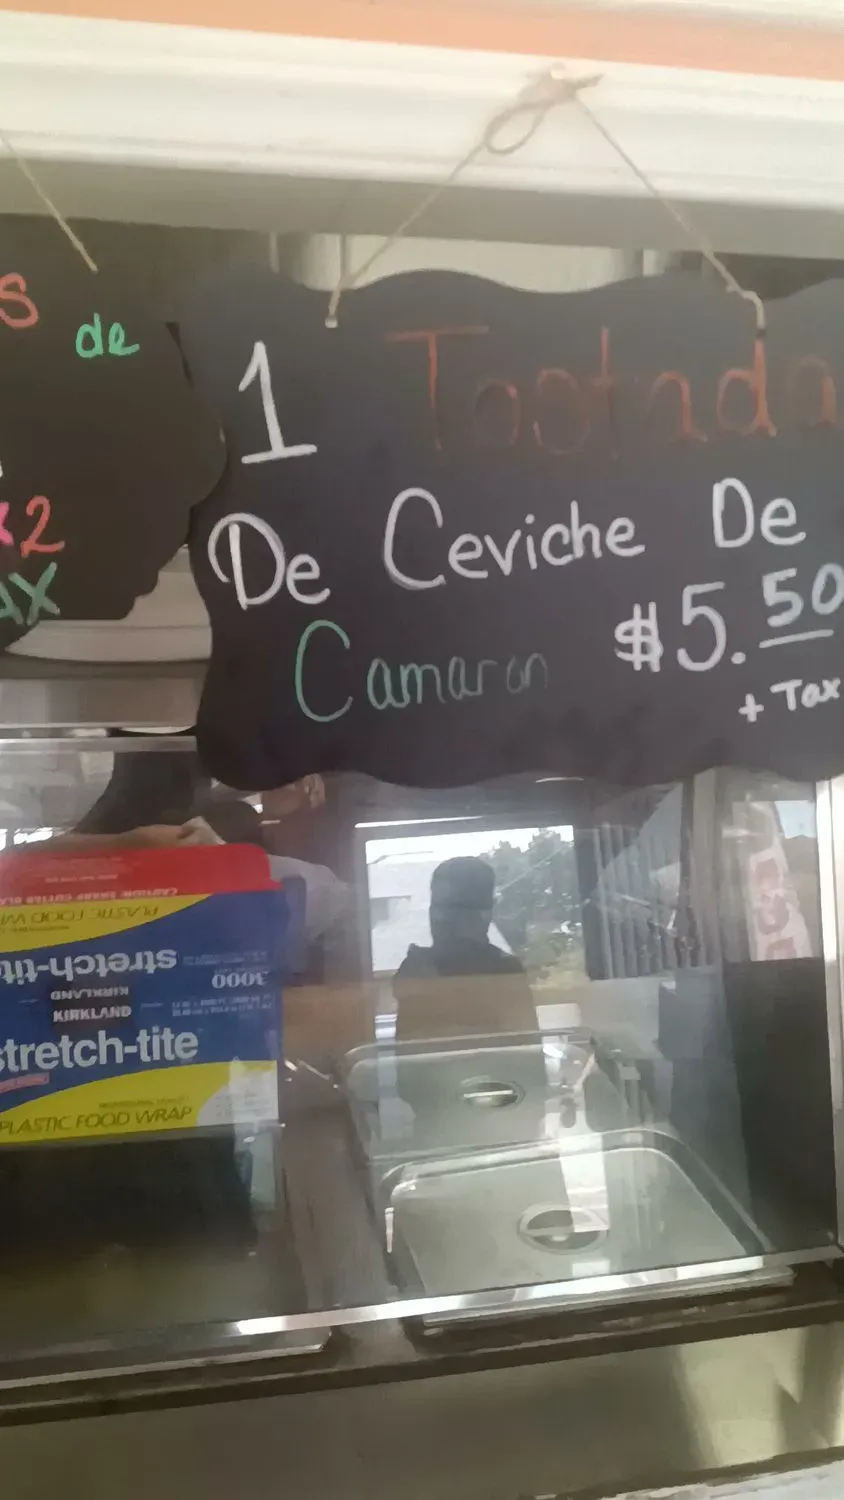 s
de
x2
AX
1 Tostada
De Ceviche De
Camaron $5.50
+ Tax
PLASTIC FOOD W
stretch-tit
3000
KIRKLAND
KIRKLAND
stretch-tite
PLASTIC FOOD WRAP